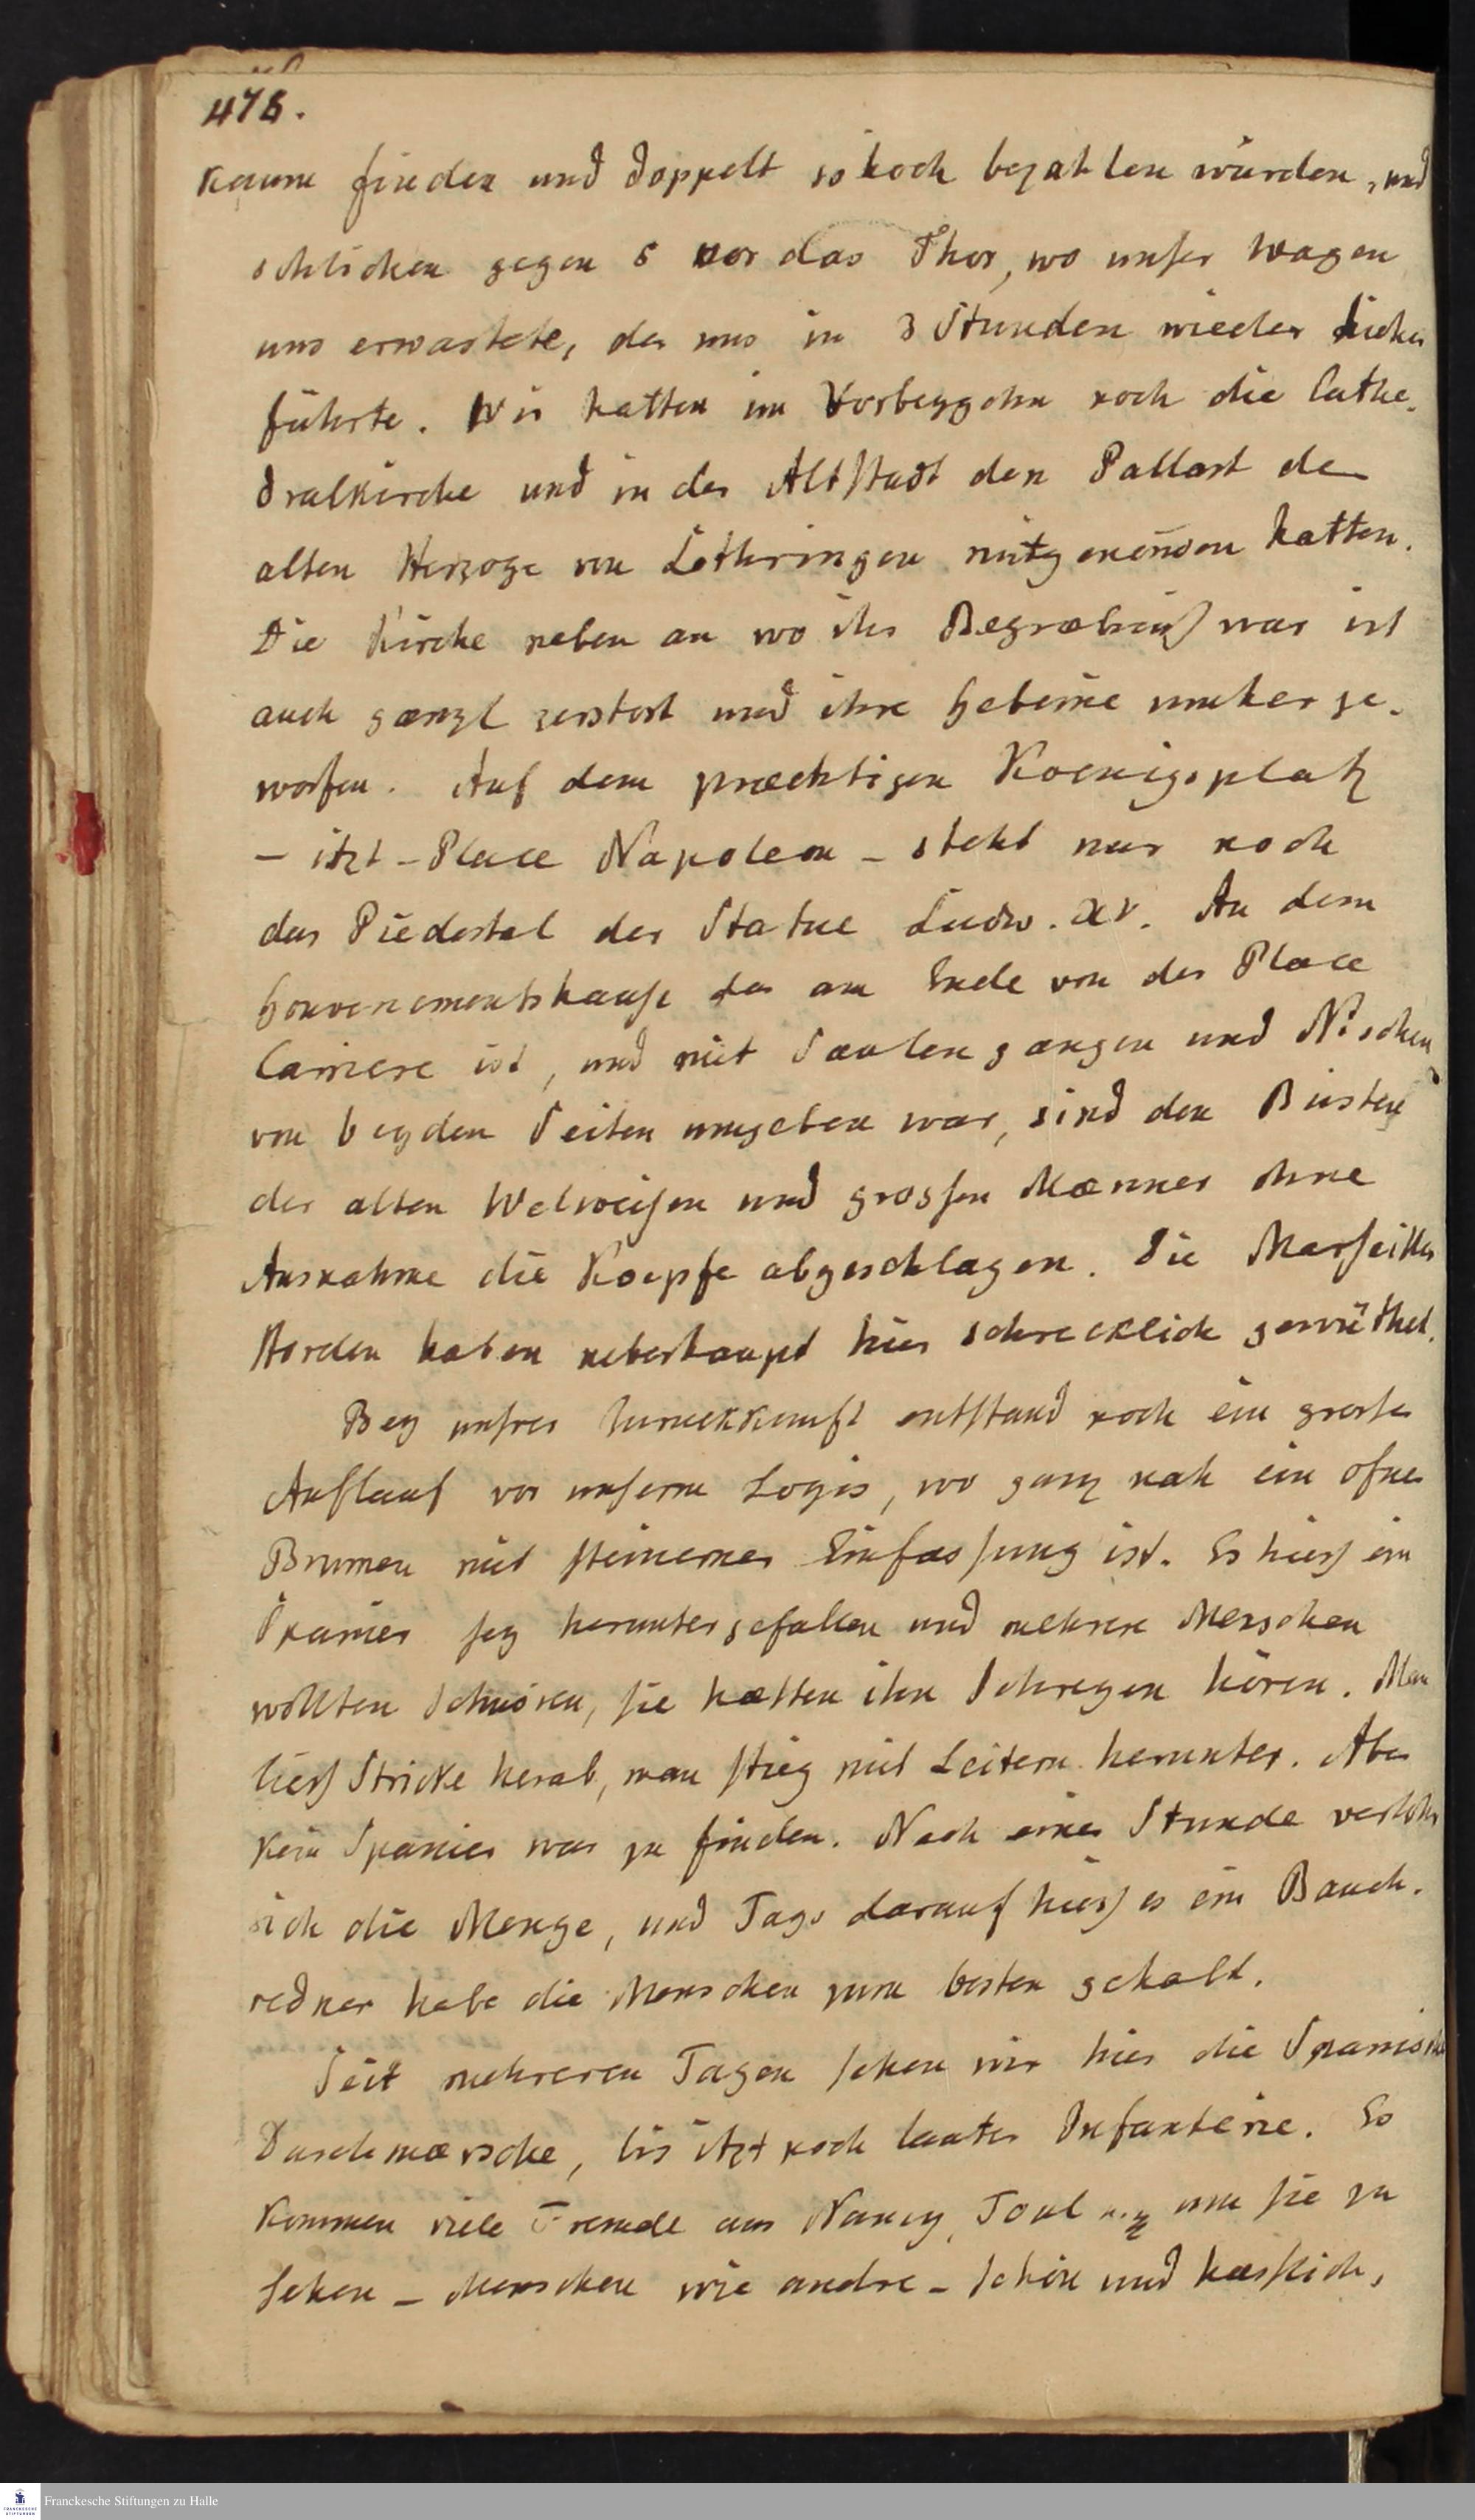 478.
kaum finden und doppelt so hoch bezahlen würden, und
schlichen gegen 5 vor das Thor, wo unser Wagen
uns erwartete, der uns in 3 Stunden wieder hieher
führte. Wir hatten im Vorbeygehn noch die Cathe-
dralkirche und in der Altstadt den Pallast der
alten Herzoge von Lothringen mitgenom̄en hatten.
Die Kirche neben an wo ihr Begræbniß war ist
auch gænzl zerstört und ihre Gebeine umher ge-
worfen. Auf dem præchtigen Koenigsplatz
– itzt – Place Napoleon – steht nur noch
das Piedestal der Statue Ludw. XV. An dem
Gouvernementshause das am Ende von der Place
Carriere ist, und mit Saulengangen und Nischen
von beyden Seiten umgeben war, sind den Büsten
der alten Welweisen und grossen Mænner ohne
Ausnahme die Koepfe abgeschlagen. Die Marseiller
Horden haben ueberhaupt hier schrecklich gewüthet.
Bey unsrer Zurückkunft entstand noch ein grosser
Auflauf vor unserm Logis, wo ganz nah ein ofner
Brunnen mit steinerner Einfassung ist. Es hiess ein
Spanier sey heruntergefallen und mehrere Menschen
wollten schwören, sie hætten ihn Schreyen hören. Man
liess Stricke herab, man stieg mit Leitern herunter. Aber
kein Spanier war zu finden. Nach einer Stunde verlohr
sich die Menge, und Tags darauf hiess es ein Bauch-
redner habe die Menschen zum besten gehabt.
Seit mehreren Tagen sehen wir hier die Spanischen
Durchmærsche, bis itzt noch lauter Infanterie. Es
kommen viele Fremde aus Nancy, Toul u. um sie zu
sehen – Menschen wie andre – schön und hæsslich,
Franckesche Stiftungen zu Halle